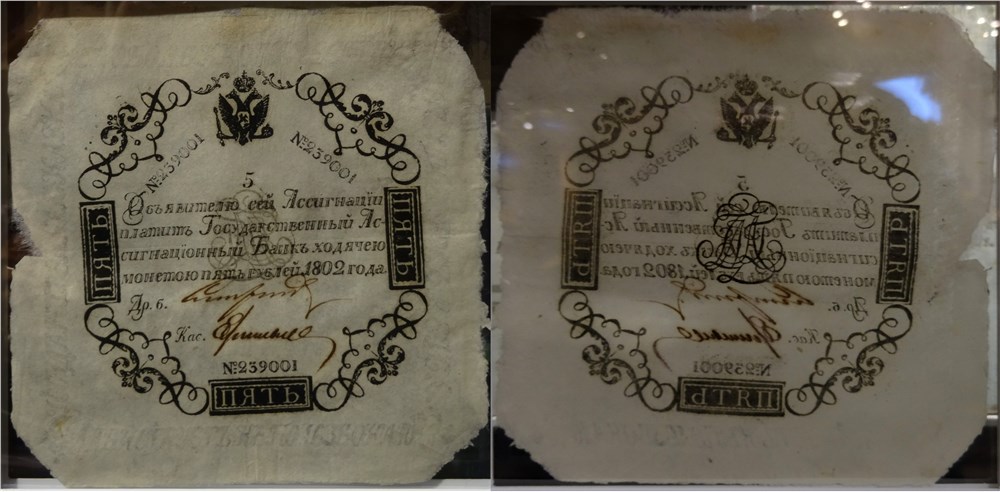 №239001 №239001
5
Объявителю сей Ассигнацiи
платитъ Государственный Ас-
сигнацiонный Банкъ ходячею
монетою пять рублей 1802 года
ПЯТЬ
ПЯТЬ
Др. б.
Кас.
№239001
ПЯТЬ
№239001 №239001
5
Объявителю сей Ассигнацiи
платитъ Государственный Ас-
сигнацiонный Банкъ ходячею
монетою пять рублей 1802 года
ПЯТЬ
ПЯТЬ
Др. б.
Кас.
№239001
ПЯТЬ